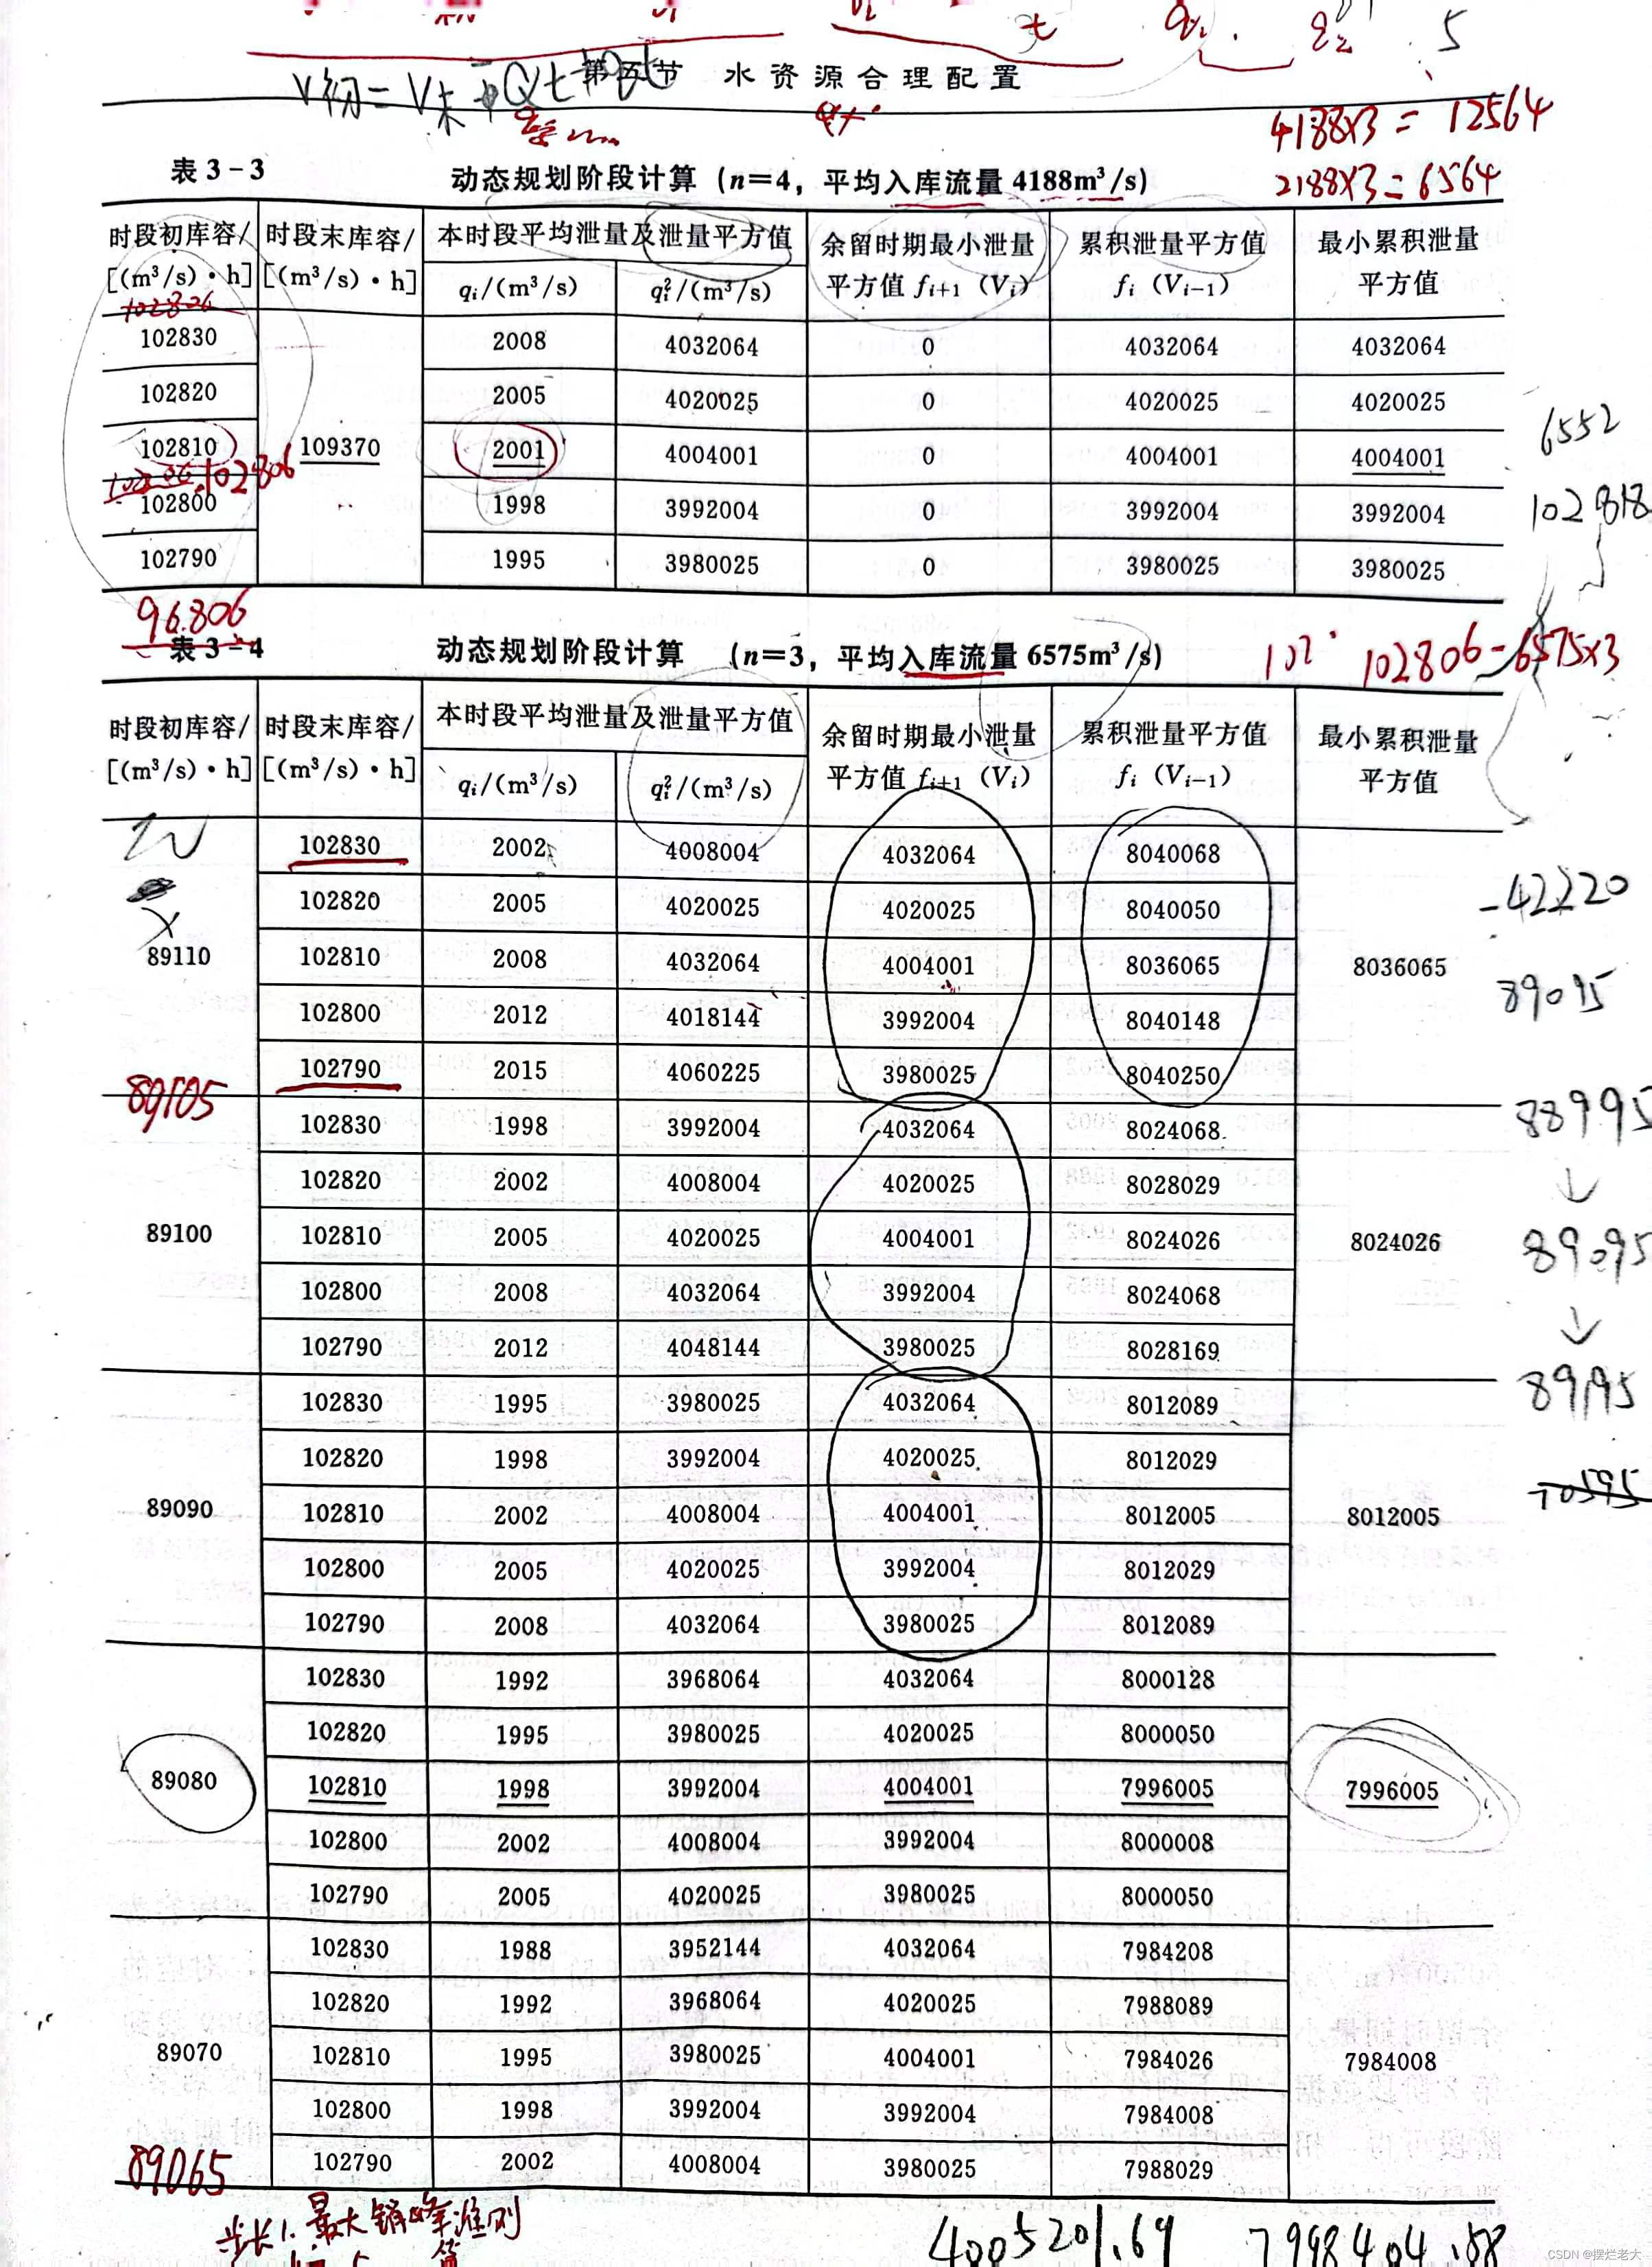 5
V初=V末+Qt
第五节 水资源合理配置
4188×3=12564
2188×3=6564
表3-3 动态规划阶段计算 (n=4, 平均入库流量 4188m³/s)
时段初库容/ 时段末库容/ 本时段平均泄量及泄量平方值 余留时期最小泄量 累积泄量平方值 最小累积泄量
[(m³/s)·h] [(m³/s)·h] qᵢ/(m³/s) qᵢ²/(m³/s) 平方值 fᵢ₊₁ (Vᵢ) fᵢ (Vᵢ₋₁) 平方值
102806
102830 2008 4032064 0 4032064 4032064
102820 2005 4020025 0 4020025 4020025
102810 109370 2001 4004001 0 4004001 4004001
6552
102806
102800 1998 3992004 0 3992004 3992004
102818
102790 1995 3980025 0 3980025 3980025
96806
表3-4 动态规划阶段计算 (n=3, 平均入库流量 6575m³/s)
102 102806-6575×3
时段初库容/ 时段末库容/ 本时段平均泄量及泄量平方值 余留时期最小泄量 累积泄量平方值 最小累积泄量
[(m³/s)·h] [(m³/s)·h] qᵢ/(m³/s) qᵢ²/(m³/s) 平方值 fᵢ₊₁ (Vᵢ) fᵢ (Vᵢ₋₁) 平方值
102830 2002 4008004 4032064 8040068
102820 2005 4020025 4020025 8040050
-42220
89110 102810 2008 4032064 4004001 8036065 8036065
89095
102800 2012 4018144 3992004 8040148
102790 2015 4060225 3980025 8040250
89105
88995
102830 1998 3992004 4032064 8024068
102820 2002 4008004 4020025 8028029
89100 102810 2005 4020025 4004001 8024026 8024026
89095
102800 2008 4032064 3992004 8024068
102790 2012 4048144 3980025 8028169
89195
102830 1995 3980025 4032064 8012089
102820 1998 3992004 4020025 8012029
70595
89090 102810 2002 4008004 4004001 8012005 8012005
102800 2005 4020025 3992004 8012029
102790 2008 4032064 3980025 8012089
102830 1992 3968064 4032064 8000128
102820 1995 3980025 4020025 8000050
89080 102810 1998 3992004 4004001 7996005 7996005
102800 2002 4008004 3992004 8000008
102790 2005 4020025 3980025 8000050
102830 1988 3952144 4032064 7984208
102820 1992 3968064 4020025 7988089
89070 102810 1995 3980025 4004001 7984026 7984008
102800 1998 3992004 3992004 7984008
102790 2002 4008004 3980025 7988029
89065
步长1. 最大销峰准则
4005201.69 7998404.88
CSDN @摆烂老大